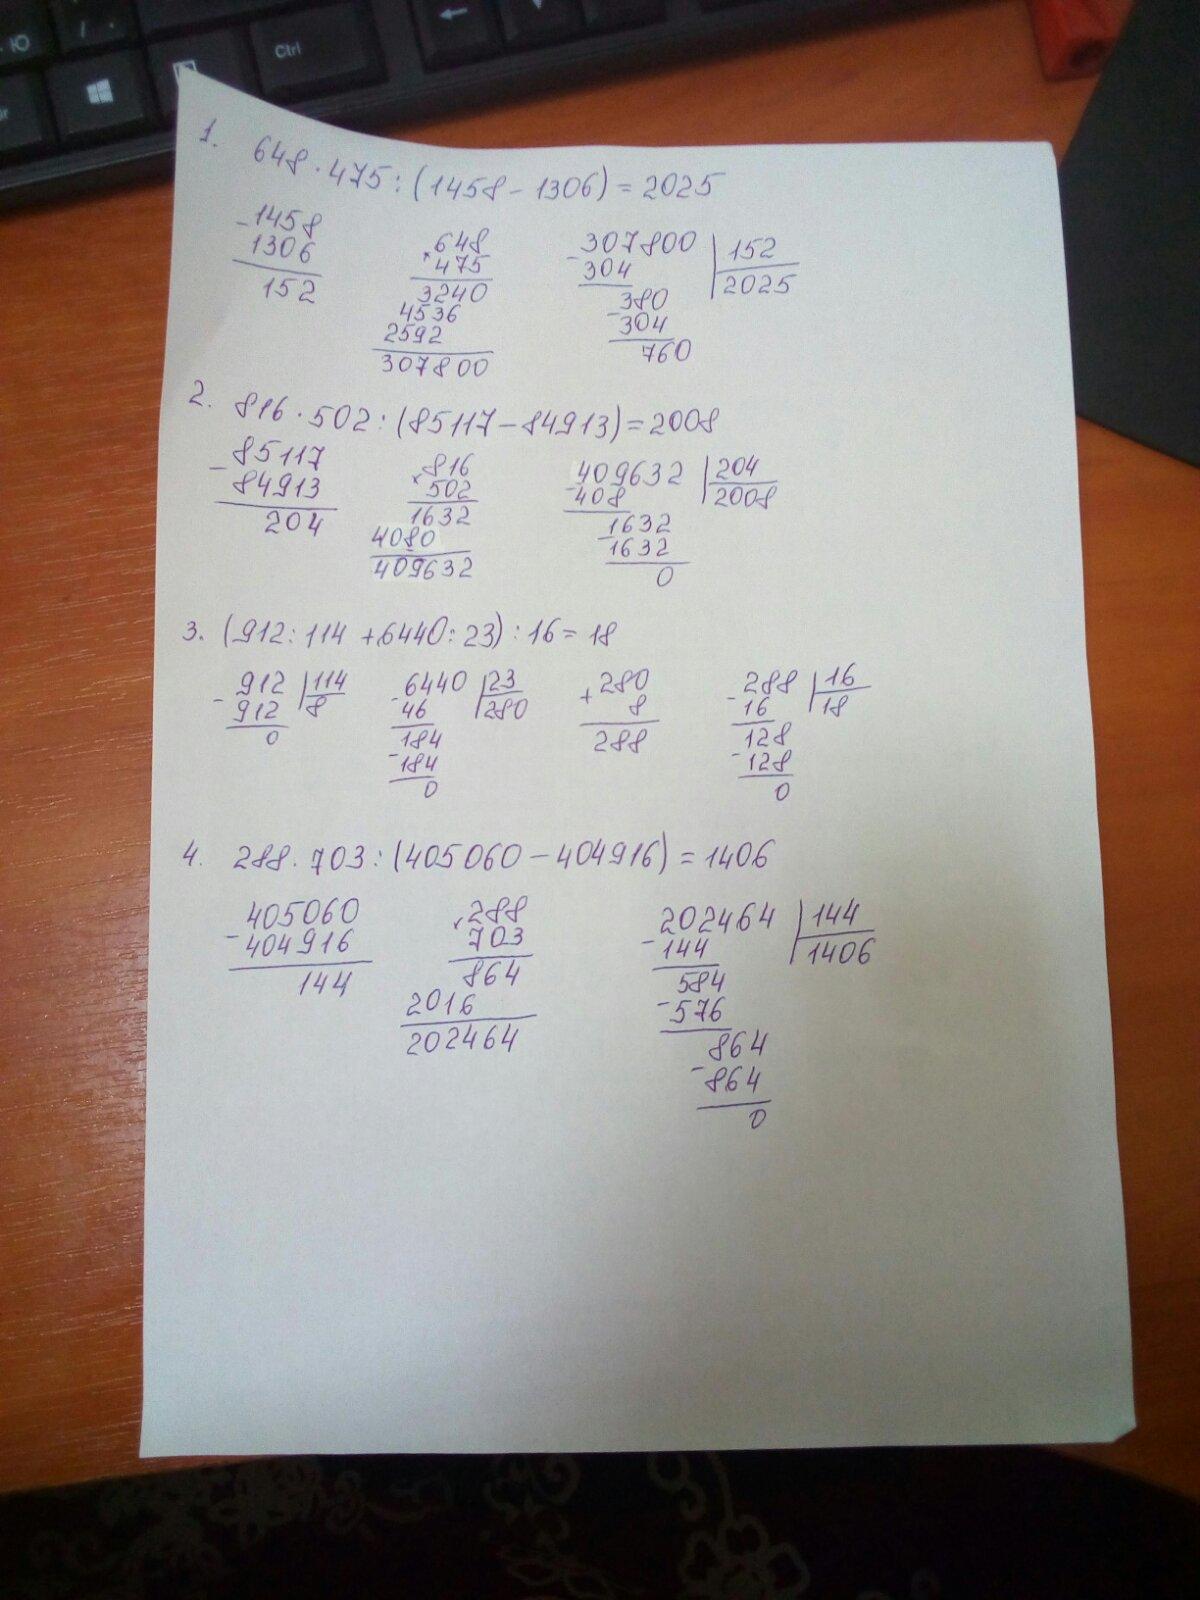 Ю
/ .
Ctrl
1. 648 · 475 : (1458 - 1306) = 2025
- 1458 1306 152
× 648 475 3240 4536 2592 307800
- 307800 | 152 304 2025 - 380 304 760
2. 816 · 502 : (85117 - 84913) = 2008
- 85117 84913 204
× 816 502 1632 4080 409632
- 409632 | 204 408 2008 - 1632 1632 0
3. (912 : 114 + 6440 : 23) : 16 = 18
- 912 | 114 912 8 0
- 6440 | 23 46 280 184 - 184 0
+ 280 8 288
- 288 | 16 16 18 128 - 128 0
4. 288 · 703 : (405060 - 404916) = 1406
- 405060 404916 144
× 288 703 864 2016 202464
- 202464 | 144 144 1406 584 - 576 864 - 864 0